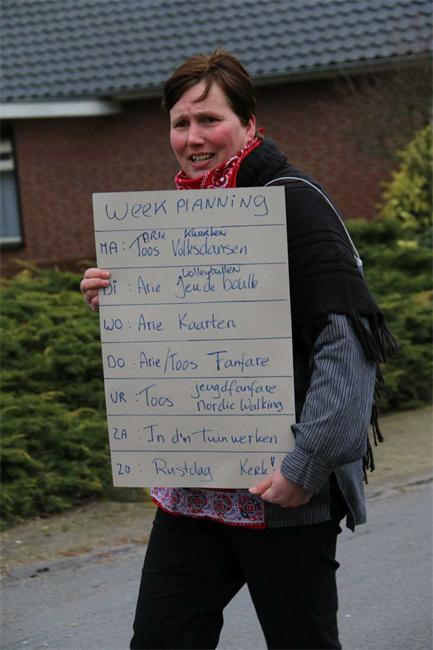 WEEK PLANNING
ARIE Kaarten
MA: Toos Volksdansen
Volleyballen
DI: Arie Jeu de boulle
WO: Arie Kaarten
DO: Arie/Toos Fanfare
VR: Toos jeugdfanfare
Nordic Walking
ZA: In d'n Tuin werken
ZO: Rustdag Kerk!!